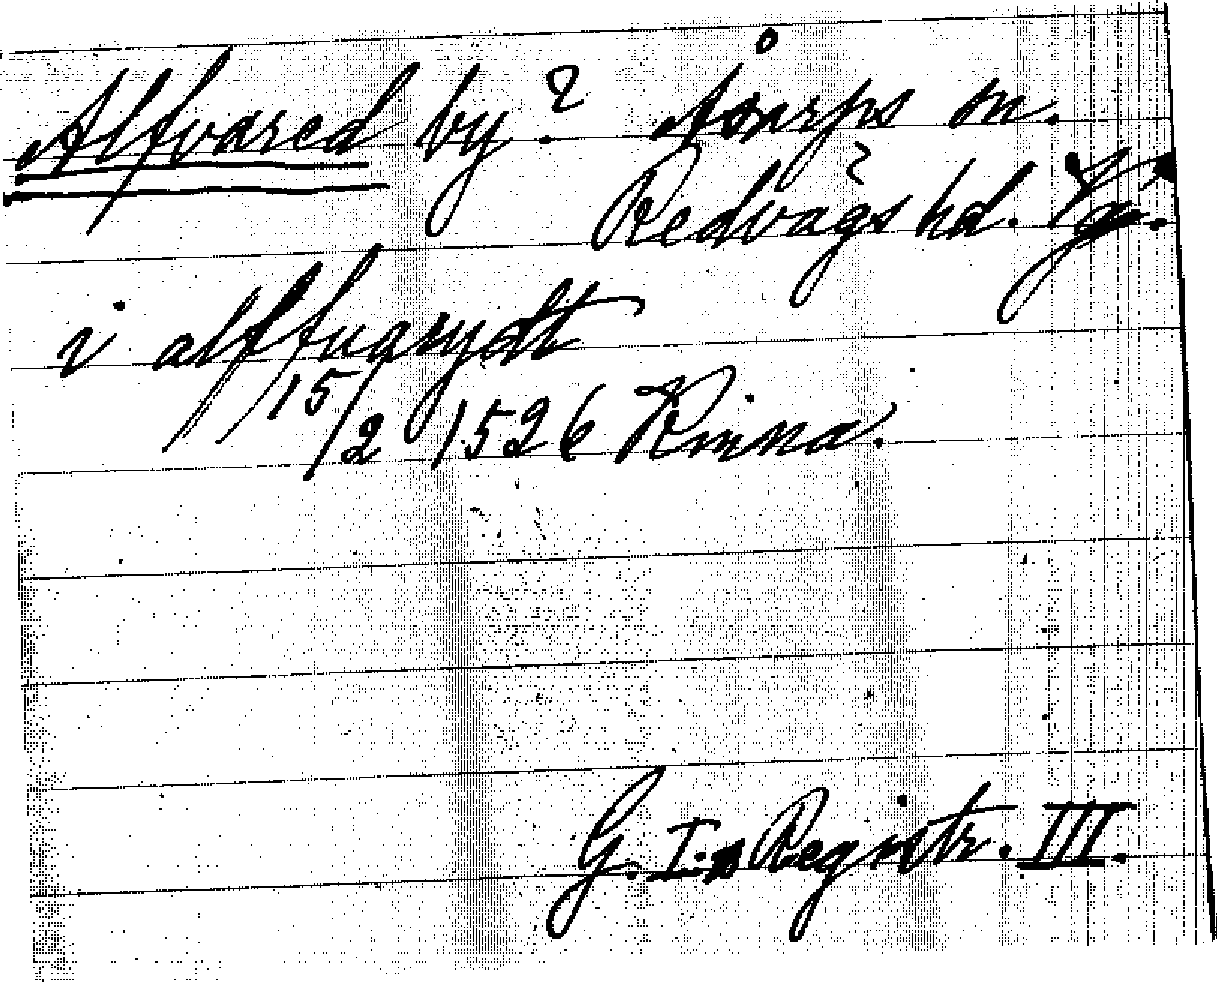 Alfvared by? Åsarps sn.
Redvägs hd. Vg.
i alffuarydt
15/2 1526 Kinna.
G. I.s Registr. III.